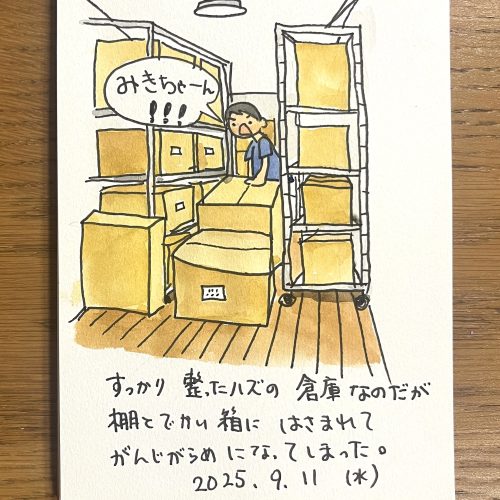 みきちゃーん
!!!
すっかり 整ったハズの 倉庫なのだが
棚とでかい箱に はさまれて
がんじがらめになってしまった。
2025.9.11 (水)